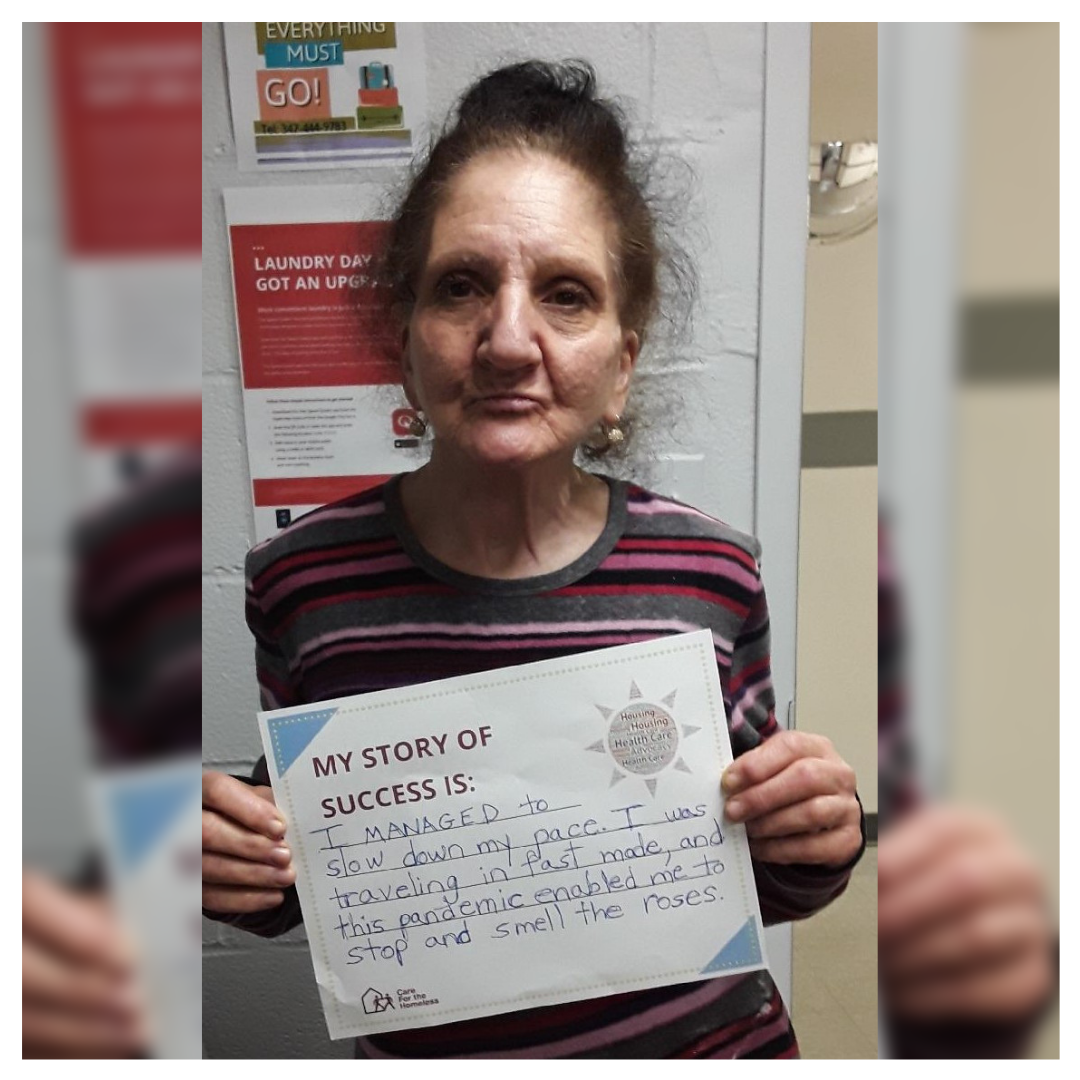 EVERYTHING
MUST
GO!
Tel: 347-444-9783
LAUNDRY DAY
GOT AN
MY STORY OF
SUCCESS IS:
I MANAGED to
slow down my pace. I was
traveling in fast mode, and
this pandemic enabled me to
stop and smell the roses.
Housing
Housing
Health Care
Advocacy
Health Care
Care
For the
Homeless